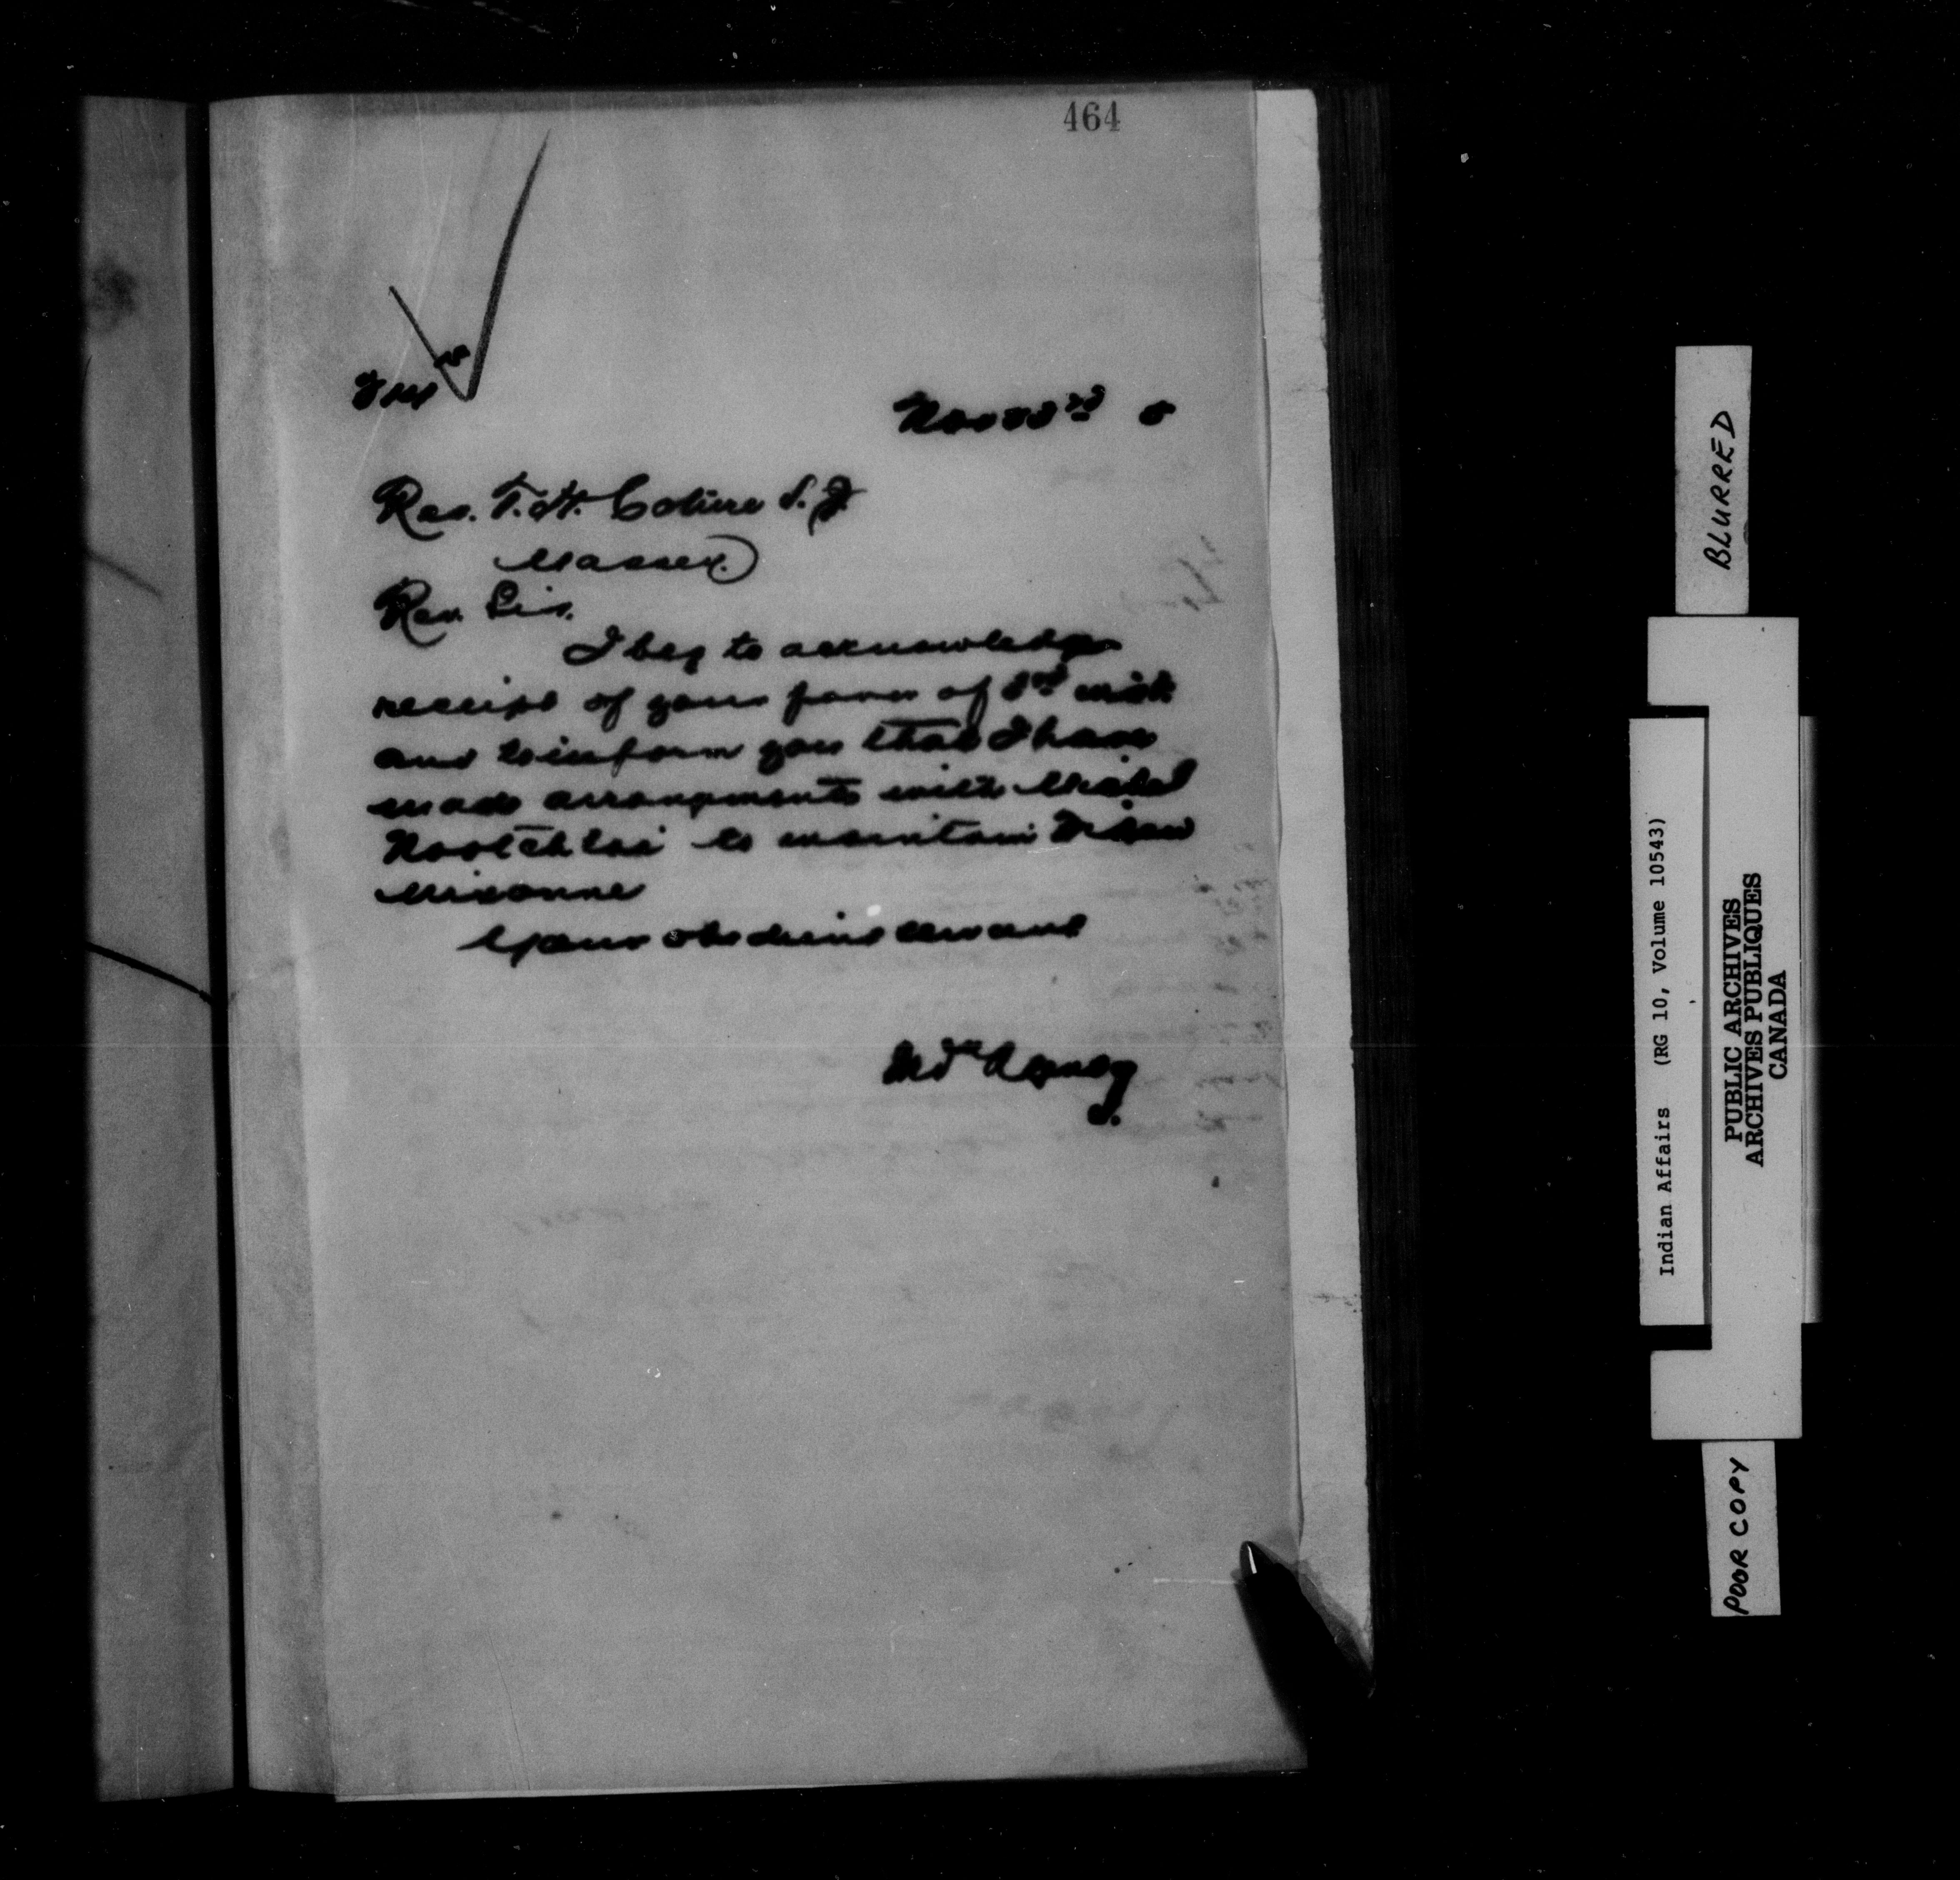 464
Nov 22nd 5
Rev. T. H. Coture S. J.
Massey.
Rev. Sir.
I beg to acknowledge
receipt of your favor of inst.
and to inform you that I have
made arrangements with Michel
to maintain
Yours obedient servant
BLURRED
Indian Affairs (RG 10, Volume 10543)
PUBLIC ARCHIVES
ARCHIVES PUBLIQUES
CANADA
POOR COPY